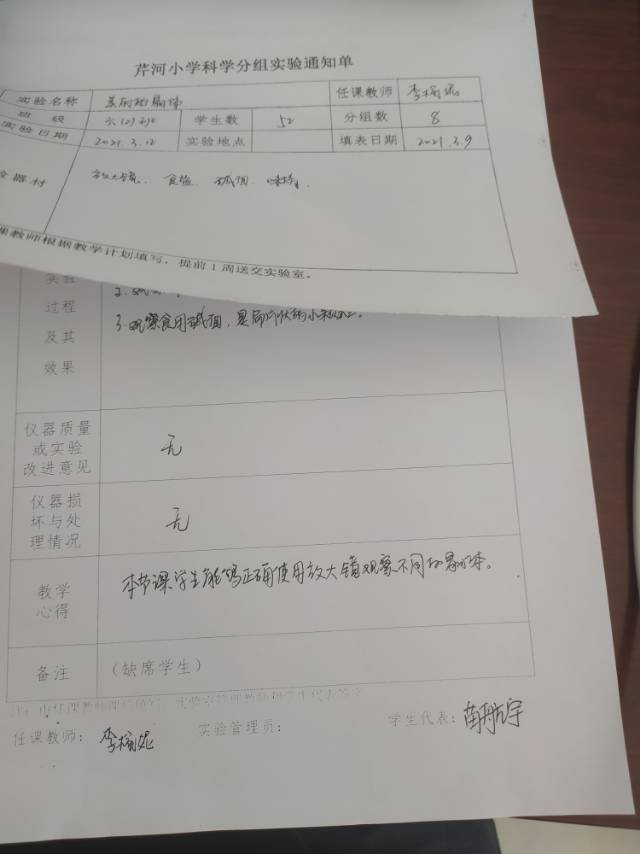 芹河小学科学分组实验通知单
实验名称 美丽的晶体 任课教师 李梅妮
班级 六(2)班 学生数 52 分组数 8
实验日期 2021.3.12 实验地点 填表日期 2021.3.9
器材 放大镜、食盐、碱面、味精。
教师根据教学计划填写，提前1周送交实验室。
实验
过程
及其
效果
3.观察食用碱面，是
仪器质量
或实验
改进意见
无
仪器损
坏与处
理情况
无
教学
心得
本节课学生能够正确使用放大镜观察不同的晶体。
备注 (缺席学生)
任课教师： 李梅妮 实验管理员： 学生代表：